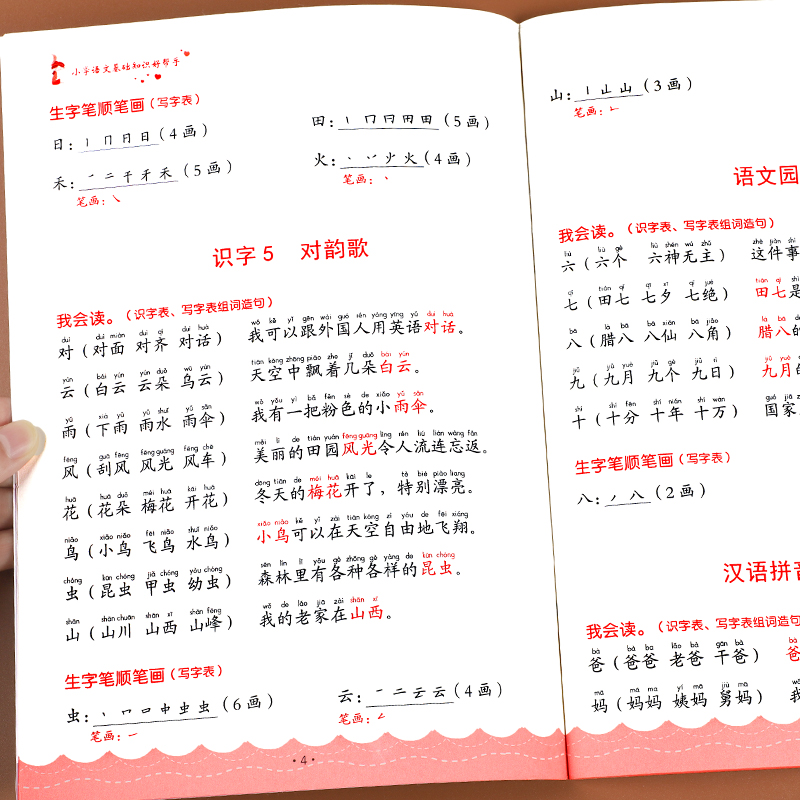 小学语文基础知识好帮手
生字笔顺笔画（写字表）
日：丨 冂 日 日（4画）
田：丨 冂 日 田 田（5画）
禾：一 二 千 禾 禾（5画）
笔画：㇏
火：丶 丷 少 火（4画）
笔画：丶
识字5 对韵歌
我会读。（识字表、写字表组词造句）
duì duì miàn duì qí duì huà
wǒ kě yǐ gēn wài guó rén yòng yīng yǔ duì huà
对（对面 对齐 对话）
我可以跟外国人用英语对话。
yún bái yún yún duǒ wū yún
tiān kōng zhōng piāo zhe jǐ duǒ bái yún
云（白云 云朵 乌云）
天空中飘着几朵白云。
yǔ xià yǔ yǔ shuǐ yǔ sǎn
wǒ yǒu yì bǎ fěn sè de xiǎo yǔ sǎn
雨（下雨 雨水 雨伞）
我有一把粉色的小雨伞。
fēng guā fēng fēng guāng fēng chē
měi lì de tián yuán fēng guāng lìng rén liú lián wàng fǎn
风（刮风 风光 风车）
美丽的田园风光令人流连忘返。
huā huā duǒ méi huā kāi huā
dōng tiān de méi huā kāi le tè bié piào liang
花（花朵 梅花 开花）
冬天的梅花开了，特别漂亮。
niǎo xiǎo niǎo fēi niǎo shuǐ niǎo
xiǎo niǎo kě yǐ zài tiān kōng zì yóu de fēi xiáng
鸟（小鸟 飞鸟 水鸟）
小鸟可以在天空自由地飞翔。
chóng kūn chóng jiǎ chóng yòu chóng
sēn lín lǐ yǒu gè zhǒng gè yàng de kūn chóng
虫（昆虫 甲虫 幼虫）
森林里有各种各样的昆虫。
shān shān chuān shān xī shān fēng
wǒ de lǎo jiā zài shān xī
山（山川 山西 山峰）
我的老家在山西。
生字笔顺笔画（写字表）
虫：丨 口 口 中 虫 虫（6画）
笔画：一
云：一 二 云 云（4画）
笔画：㇜
·4·
山：丨 山 山（3画）
笔画：㇗
语文园
我会读。（识字表、写字表组词造句）
liù liù gè liù shén wú zhǔ
zhè jiàn shì
六（六个 六神无主）
这件事
qī tián qī qī xī qī jué
tián qī shì
七（田七 七夕 七绝）
田七是
bā là bā bā xiān bā jiǎo
là bā de
八（腊八 八仙 八角）
腊八的
jiǔ jiǔ yuè jiǔ gè jiǔ rì
jiǔ yuè
九（九月 九个 九日）
九月的
shí shí fēn shí nián shí wàn
guó jiā
十（十分 十年 十万）
国家
生字笔顺笔画（写字表）
八：丿 八（2画）
汉语拼音
我会读。（识字表、写字表组词造句）
bà bà ba lǎo bà gān bà
bà
爸（爸爸 老爸 干爸）
爸
mā mā ma yí mā jiù mā
wǒ
妈（妈妈 姨妈 舅妈）
我